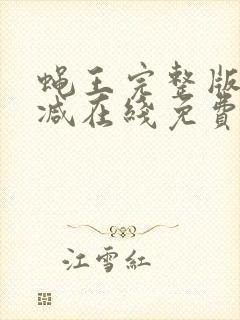 蝇王完整版
减在线免費
江雪紅